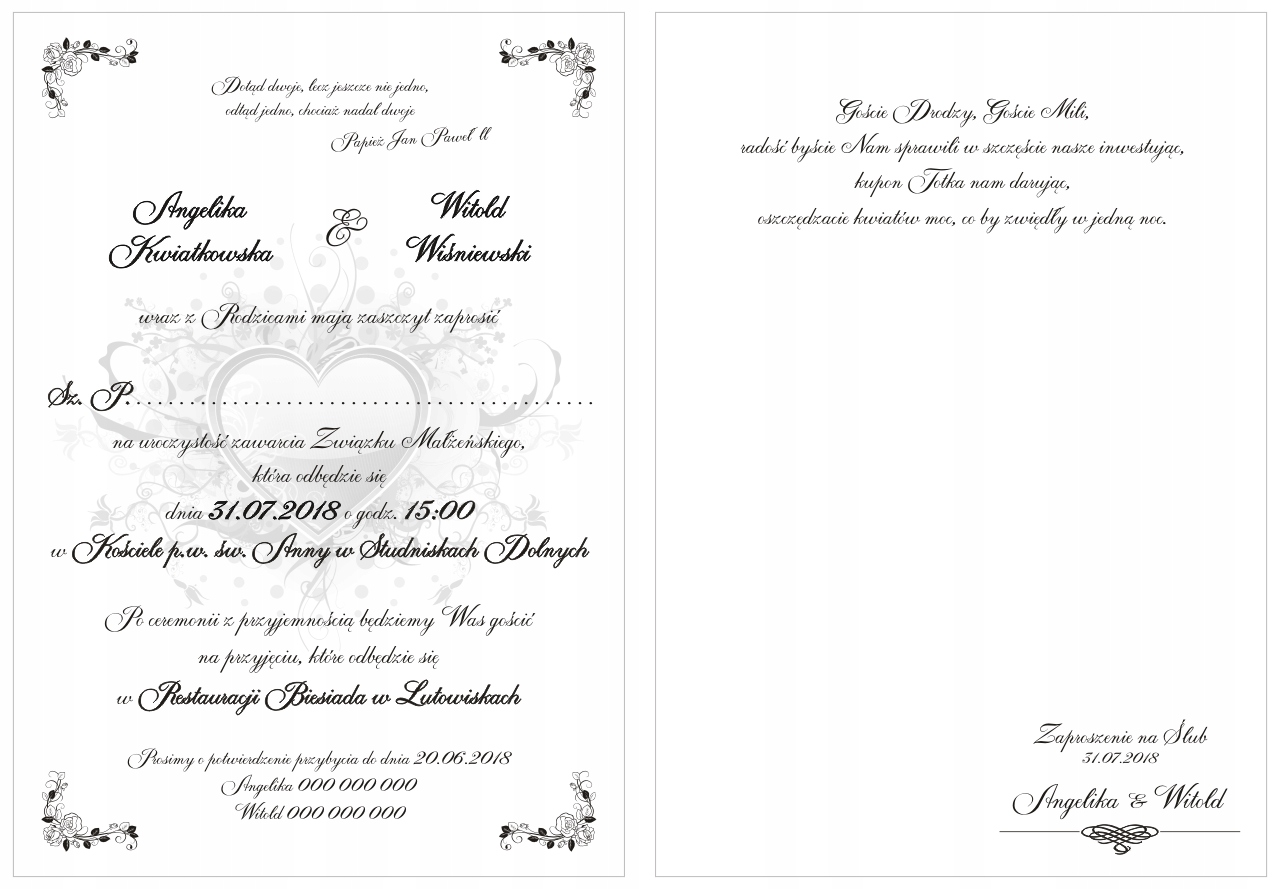 Dotąd dwoje, lecz jeszcze nie jedno,
odtąd jedno, chociaż nadal dwoje
Papież Jan Paweł II
Angelika
Kwiatkowska
&
Witold
Wiśniewski
wraz z Rodzicami mają zaszczyt zaprosić
Sz. P. . . . . . . . . . . . . . . . . . . . . . . . . . . . . . . . . . . . . . . . . . . . . . . . .
na uroczystość zawarcia Związku Małżeńskiego,
która odbędzie się
dnia 31.07.2018 o godz. 15:00
w Kościele p.w. św. Anny w Studniskach Dolnych
Po ceremonii z przyjemnością będziemy Was gościć
na przyjęciu, które odbędzie się
w Restauracji Biesiada w Lutowiskach
Prosimy o potwierdzenie przybycia do dnia 20.06.2018
Angelika 000 000 000
Witold 000 000 000
Goście Drodzy, Goście Mili,
radość byście Nam sprawili w szczęście nasze inwestując,
kupon Totka nam darując,
oszczędzacie kwiatów moc, co by zwiędły w jedną noc.
Zaproszenie na Ślub
31.07.2018
Angelika & Witold